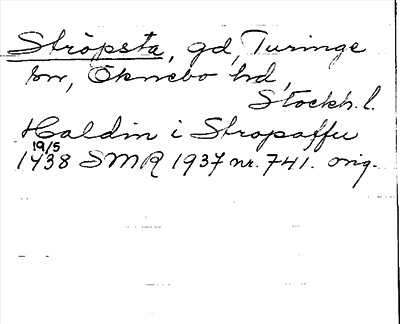 Ströpsta, gd, Turinge
sn, Öknebo hd,
Stockh. l.
Haldin i Stropaffu
19/5
1438 SMR 1937 nr. 741. orig.